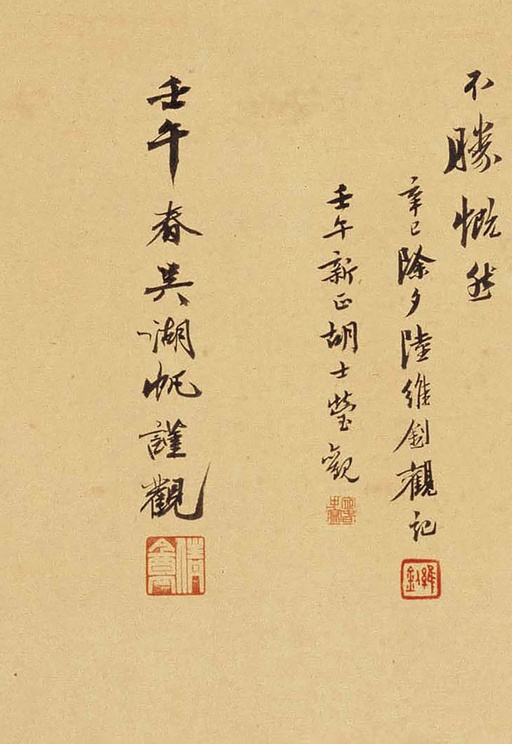 不勝慨然
辛巳除夕陸維釗觀記
維釗
壬午新正胡士瑩觀
壬午春吳湖帆謹觀